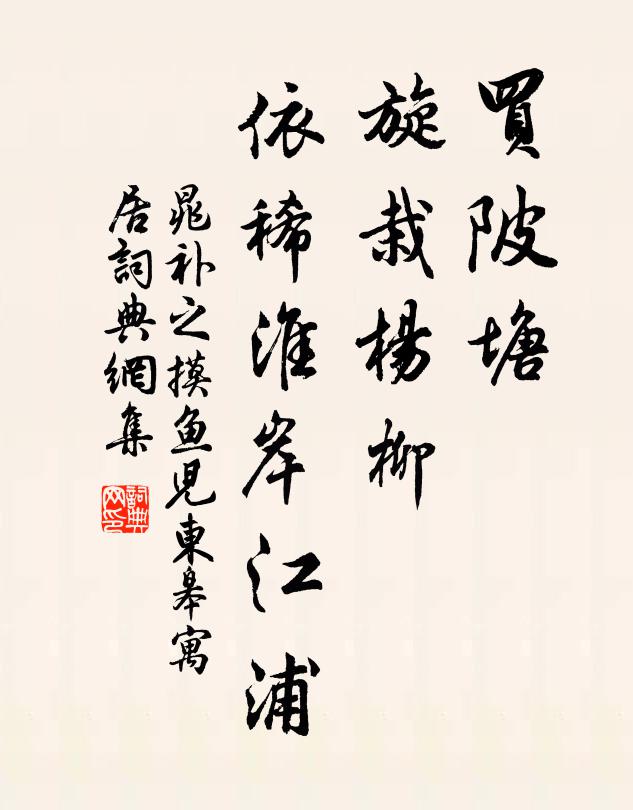 買陂塘
旋栽楊柳
依稀淮岸江浦
晁补之摸鱼児東皋寓
居詞典網集
詞典
网印